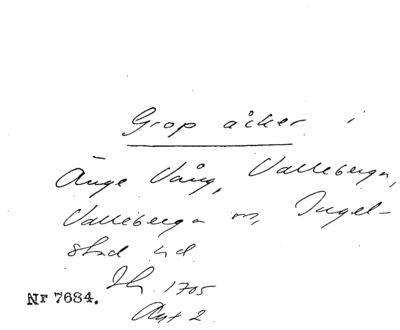 Grop åker i
Änge Vång, Valleberga,
Valleberga sn, Ingel-
stad hd
1705
Akt 2
Nr 7684.